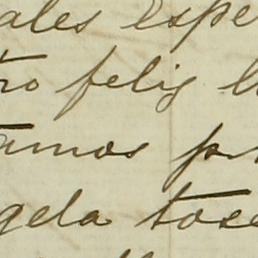 ales espe
ro felis l
amos pr
gela tose